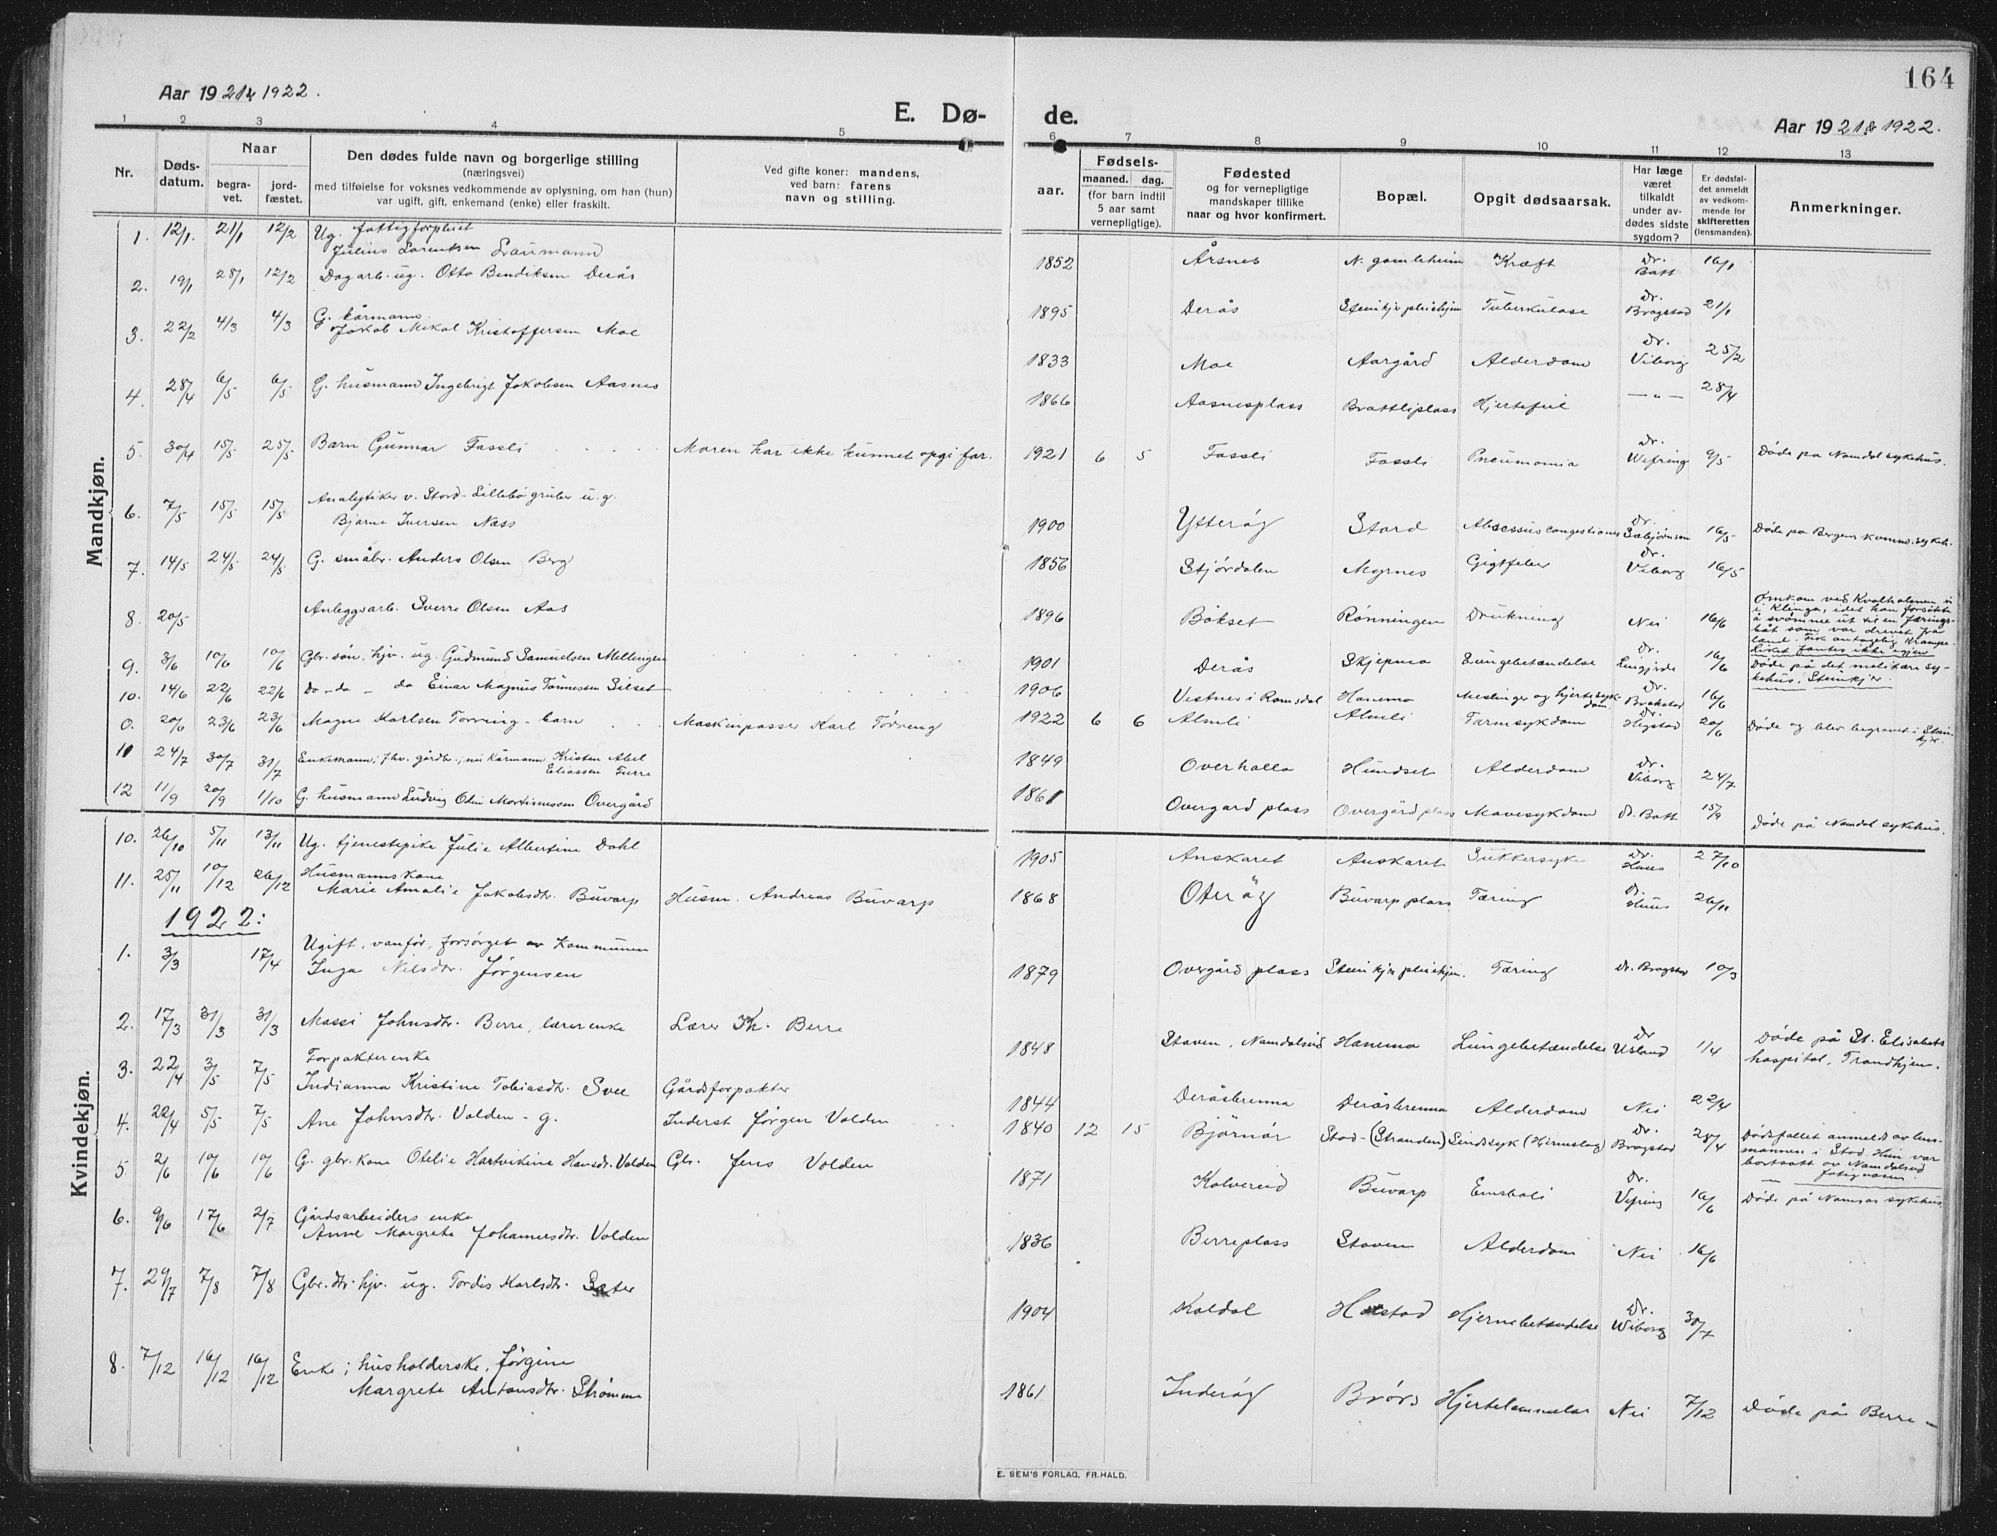 164
Aar 1921 & 1922.
E. Dø- de.
Aar 1921 & 1922.
1 2 3 4 5 6 7 8 9 10 11 12 13
Nr.
Døds-
datum.
Naar
begra-
vet.
jord-
fæstet.
Den dødes fulde navn og borgerlige stilling
(næringsvei)
med tilføielse for voksnes vedkommende av oplysning, om han (hun)
var ugift, gift, enkemand (enke) eller fraskilt.
Ved gifte koner: mandens,
ved barn: farens
navn og stilling.
Fødsels-
aar.
maaned. dag.
(for barn indtil
5 aar samt
vernepligtige).
Fødested
og for vernepligtige
mandskaper tillike
naar og hvor konfirmert.
Bopæl.
Opgit dødsaarsak.
Har læge
været
tilkaldt
under av-
dødes sidste
sygdom?
Er dødsfal-
det anmeldt
av vedkom-
mende for
skifteretten
(lensmanden).
Anmerkninger.
Mandkjøn.
1. 12/1. 21/1 12/2 Ug. fattigforpleiet
Julius Lorentsen
1852 Årsnes N. gamleheim Kræft Dr. Batt 16/1
2. 19/1 28/1 12/2 Dagarb. ug. Otto Bendiksen Derås
1895 Derås Steinkjer pleiehjem Tuberkulose Dr. Brogstad 21/1
3. 22/2 4/3 4/3 G. kårmann
Jakob Mikal Kristoffersen Moe
1833 Moe Aargård Alderdom Dr. Viborg 25/2
4. 28/4 6/5 6/5 G. husmann Ingebrigt Jakobsen Aasnes
1866 Aasnesplass Brattliplass Hjertefeil — " — 28/4
5. 30/4 15/5 25/5 Barn Gunnar Fossli Moren har ikke kunnet opgi far.
1921 6 5 Fossli Fossli Pneumonia Dr. Wefring 9/5 Døde på Namdal sykehus.
6. 7/5 15/5 15/5 Analytiker v. Stord-Lillebø gruber u.g.
Bjarne Iversen Næss
1900 Ytterøy Stord Abscessus congestiones Dr. Sæbjørnsen 16/5 Døde på Bergens komm. sykeh.
7. 14/5 24/5 24/5 G. småbr. Anders Olsen Berg
1856 Stjørdalen Myrnes Gigtfeber Dr. Viborg 16/5
8. 20/5 Anleggsarb. Sverre Olsen Aas
1896 Bökset Rönningen Drukning Nei 16/6 Omkom ved Kvalholmen
i Klinga, idet han forsøkte
å svømme ut til en færings-
båt som var drevet fra
land. Fik antagelig krampe
Liket fantes ikke igjen
9. 3/6 10/6 10/6 Gbr. søn, hjv. ug. Gudmund Samuelsen Mellingen
1901 Derås Skjepmo Lungebetændelse Dr. Lingjerde 16/6 Døde på det militære sy-
kehus, Steinkjer.
10. 14/6 22/6 22/6 Do - do - do Einar Magnus Tönnesen Sælset
1906 Vestnes i Romsdal Hanemo Meslinger og hjertesyk-
dom Dr. Brokstad 16/6
0. 20/6 23/6 23/6 Magne Karlsen Torring - barn Maskinpasser Karl Törring
1922 6 6 Almli Almli Tarmsykdom Dr. 20/6 Døde og blev begravet i Stein-
kjer.
11 24/7 30/7 31/7 Enkemann, fhv. gårdbr., nu kårmann Kristen Abel
Eliassen Furre
1849 Overhalla Hundset Alderdom Dr. Viborg 24/7
12 11/9 20/9 1/10 G. husmann Ludvig Odin Mortinussen Overgård
1861 Overgard plass Overgård plass Mavesykdom Dr. Batt 15/9 Døde på Namdal sykehus.
Kvindekjøn.
10. 26/10 5/11 13/11 Ug. tjenestepike Julie Albertine Dahl
1905 Anskaret Anskaret Sukkersyke Dr. 27/10
11. 25/11 10/12 26/12 Husmannskone
Marie Amalie Jakobsdtr. Buvarp Husm. Andreas Buvarp
1868 Otterøy Buvarp plass Tæring Dr. Huus 26/11
1922:
1. 3/3 17/4 Ugift, vanför, forsörget av kommunen
Inga Nilsdtr. Jørgensen
1879 Overgård plass Steinkjer pleiehjem. Tæring Dr. Brogstad 10/3
2. 17/3 31/3 31/3 Massi Johnsdtr. Berre, lærerenke Lærer Kh. Berre
1848 Staven, Namdalseid Hanemo Lungebetændelse Dr Usland 1/4 Døde på St. Elisabeth
hospital, Trondhjem.
3. 22/4 3/5 7/5 Forpakterenke
Indianna Kristine Tobiasdtr. Svee Gårdsforpakter
1844 Deråsbrenna Deråsbrenna Alderdom Nei 22/4
4. 22/4 5/5 7/5 Ane Johnsdtr. Volden - g. Inderst Jørgen Volden
1840 12 15 Björnör Stod-(Stranden) Sindssyk (Hjerneslag) Dr. Brogstad 28/4 Dødsfallet anmeldt av lens-
mannen i Stod. Hun var
bortsatt av Namdalseid
fatigvæsen.
5 2/6 10/6 10/6 G. gbr. kone Otelie Hartvikine Hansdtr. Volden Gbr. Jens Volden
1871 Kolvereid Buvarp Emboli Dr. Vefring 16/6 Døde på Namsos sykehus
6. 9/6 17/6 2/7 Gårdsarbeiders enke
Anne Margrete Johannesdtr. Volden
1836 Berreplass Staven Alderdom Nei 16/6
7. 29/7 7/8 7/8 Gbr.dtr. hjv. ug. Tordis Karlsdtr. Sæter
1904 Koldal Hustad Hjernebetændelse Dr. Wiborg 30/7
8. 7/12 16/12 16/12 Enke; husholderske, Jørgine
Margrete Antonsdtr. Strömme
1861 Inderöy Brørs Hjertelammelse Nei 7/12 Døde på Berre -
E. SEM'S FORLAG, FR.HALD.